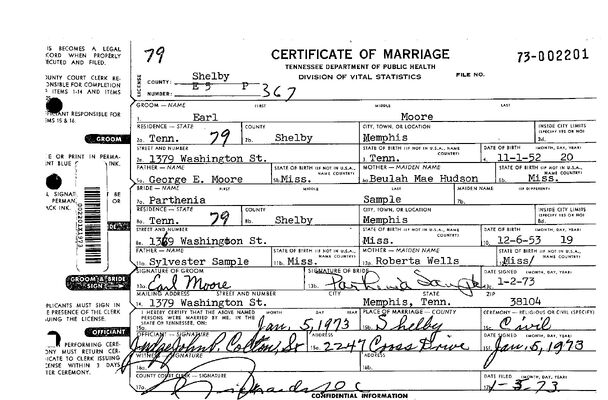 IS BECOMES A LEGAL
CORD WHEN PROPERLY
ECUTED AND FILED.
UNTY COURT CLERK RE-
ONSIBLE FOR COMPLETION
ITEMS 1-14 AND ITEMS
PLICANT RESPONSIBLE FOR
MS 15 & 16.
GROOM
E OR PRINT IN PERMA-
NT BLUE
L SIGNAT
BE
PERMAN
OR
CK INK.
GROOM & BRIDE SIGN
PLICANTS MUST SIGN IN
E PRESENCE OF THE CLERK
UING THE LICENSE.
OFFICIANT
PERFORMING CERE-
ONY MUST RETURN CER-
ICATE TO CLERK ISSUING
ENSE WITHIN 3 DAYS
TER CEREMONY.
79
CERTIFICATE OF MARRIAGE
TENNESSEE DEPARTMENT OF PUBLIC HEALTH
DIVISION OF VITAL STATISTICS
FILE NO.
73-002201
LICENSE
COUNTY: Shelby
E 5 P
NUMBER: 367
GROOM — NAME FIRST MIDDLE LAST
1. Earl Moore
RESIDENCE — STATE COUNTY CITY, TOWN, OR LOCATION INSIDE CITY LIMITS (SPECIFY YES OR NO)
2a. Tenn. 79 2b. Shelby Memphis 2d.
STREET AND NUMBER STATE OF BIRTH (IF NOT IN U.S.A., NAME COUNTRY) DATE OF BIRTH (MONTH, DAY, YEAR)
2e. 1379 Washington St. 3. Tenn. 4. 11-1-52 20
FATHER — NAME STATE OF BIRTH (IF NOT IN U.S.A., NAME COUNTRY) MOTHER — MAIDEN NAME STATE OF BIRTH (IF NOT IN U.S.A., NAME COUNTRY)
5a. George E. Moore 5b. Miss. 6a. Beulah Mae Hudson Miss.
BRIDE — NAME FIRST MIDDLE LAST MAIDEN NAME (IF DIFFERENT)
Parthenia Sample 7b.
RESIDENCE — STATE COUNTY CITY, TOWN, OR LOCATION INSIDE CITY LIMITS (SPECIFY YES OR NO)
8a. Tenn. 79 8b. Shelby Memphis 8d.
STREET AND NUMBER STATE OF BIRTH (IF NOT IN U.S.A., NAME COUNTRY) DATE OF BIRTH (MONTH, DAY, YEAR)
8e. 1369 Washington St. Miss. 10. 12-6-53 19
FATHER — NAME STATE OF BIRTH (IF NOT IN U.S.A., NAME COUNTRY) MOTHER — MAIDEN NAME STATE OF BIRTH (IF NOT IN U.S.A., NAME COUNTRY)
11a. Sylvester Sample 11b. Miss. 12a. Roberta Wells Miss/
SIGNATURE OF GROOM SIGNATURE OF BRIDE DATE SIGNED (MONTH, DAY, YEAR)
13a. Earl Moore 13b. Parthenia Sample 1-2-73
MAILING ADDRESS STREET AND NUMBER CITY STATE ZIP
14. 1379 Washington St. Memphis, Tenn. 38104
I HEREBY CERTIFY THAT THE ABOVE NAMED PERSONS WERE MARRIED BY ME, IN THE STATE OF TENNESSEE, ON: MONTH DAY YEAR PLACE OF MARRIAGE — COUNTY CEREMONY — RELIGIOUS OR CIVIL (SPECIFY)
15a. Jan. 5, 1973 15b. Shelby 15c. Civil
OFFICIANT — SIGNATURE ADDRESS DATE SIGNED (MONTH, DAY, YEAR)
Judge John P. Colton, Sr 15e. 2247 Cross Drive 15f. Jan. 5, 1973
WITNESS — SIGNATURE ADDRESS
16a. 16b.
COUNTY COURT CLERK — SIGNATURE DATE FILED (MONTH, DAY, YEAR)
17a. 1-5-73
CONFIDENTIAL INFORMATION